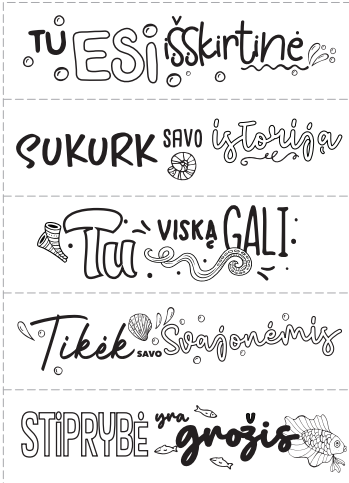 TU ESI išskirtinė
SUKURK SAVO istoriją
Tu VISKĄ GALI
Tikėk SAVO Svajonėmis
STIPRYBĖ yra grožis